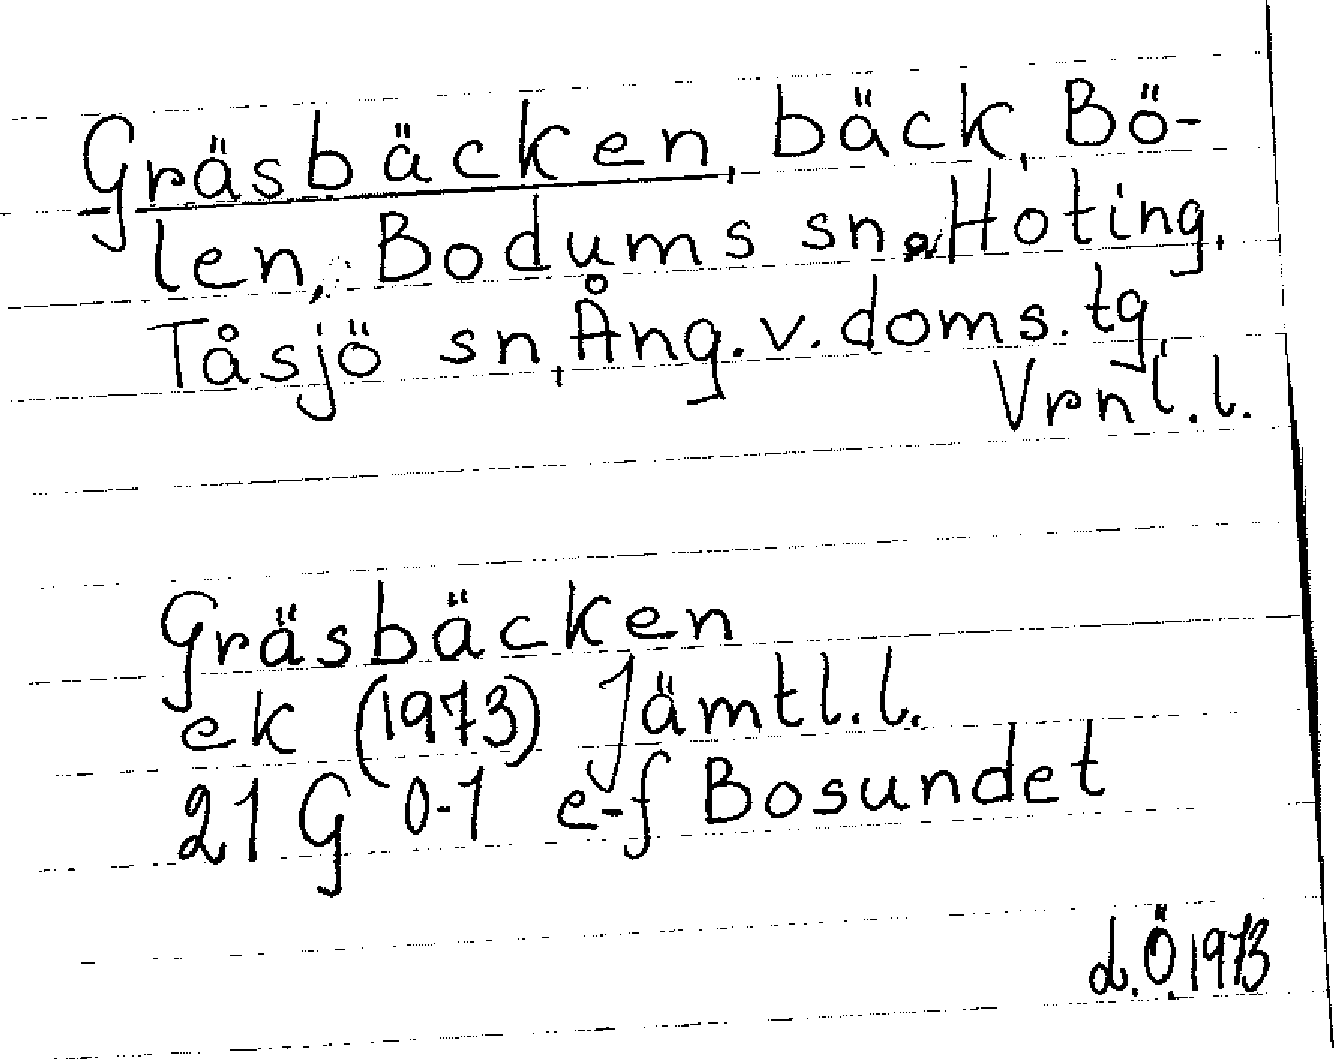 Gräsbäcken, bäck, Bö-
len, Bodums sn. Hoting,
Tåsjö sn, Ång. v. doms. tg
Vrnl. l.
Gräsbäcken
ek (1973) Jämtl. l.
21 G 0-1 e-f Bosundet
L. Ö. 1973